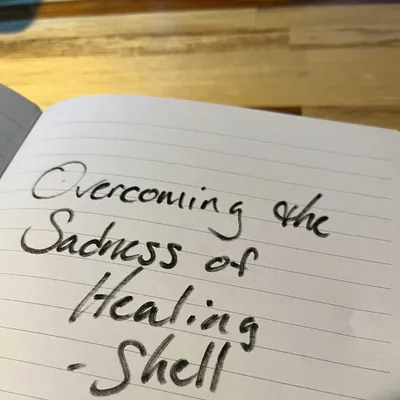 Overcoming the
Sadness of
Healing
- Shell